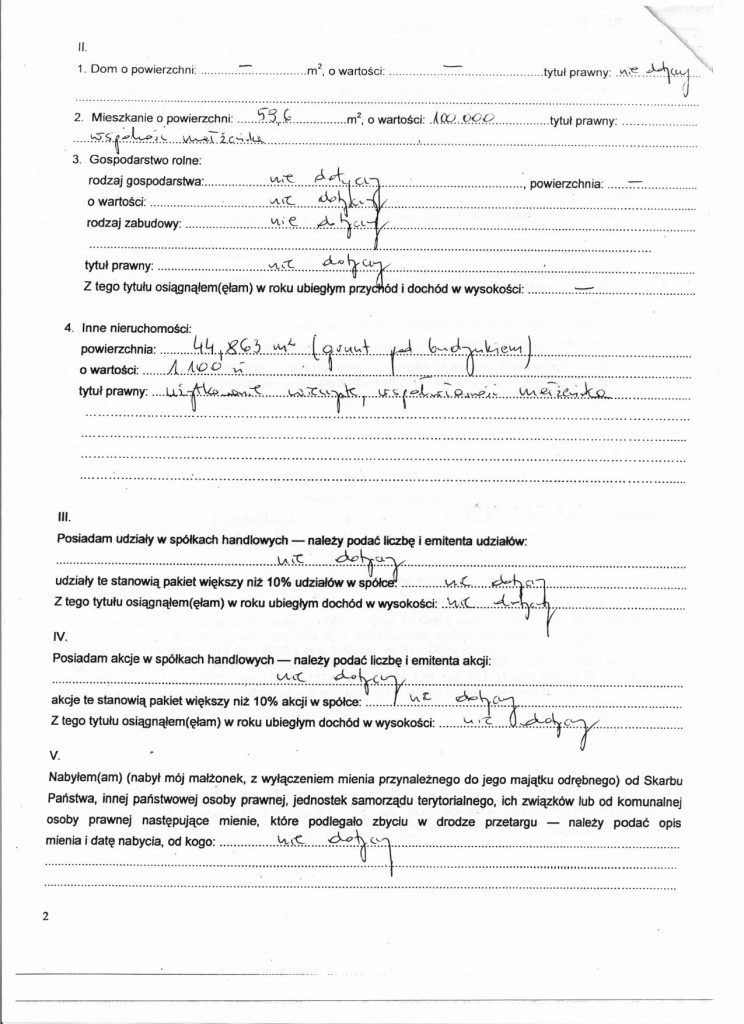 II.
1. Dom o powierzchni: — m², o wartości: — tytuł prawny: nie dotyczy
2. Mieszkanie o powierzchni: 59,6 m², o wartości: 100.000 tytuł prawny:
wspólność małżeńska
3. Gospodarstwo rolne:
rodzaj gospodarstwa: nie dotyczy, powierzchnia: —
o wartości: nie dotyczy
rodzaj zabudowy: nie dotyczy
tytuł prawny: nie dotyczy
Z tego tytułu osiągnąłem(ęłam) w roku ubiegłym przychód i dochód w wysokości: —
4. Inne nieruchomości:
powierzchnia: 44,863 m² (grunt pod budynkiem)
o wartości: 1 100 zł
tytuł prawny: użytkowanie wieczyste, współwłasność małżeńska
III.
Posiadam udziały w spółkach handlowych — należy podać liczbę i emitenta udziałów:
nie dotyczy
udziały te stanowią pakiet większy niż 10% udziałów w spółce: nie dotyczy
Z tego tytułu osiągnąłem(ęłam) w roku ubiegłym dochód w wysokości: nie dotyczy
IV.
Posiadam akcje w spółkach handlowych — należy podać liczbę i emitenta akcji:
nie dotyczy
akcje te stanowią pakiet większy niż 10% akcji w spółce: nie dotyczy
Z tego tytułu osiągnąłem(ęłam) w roku ubiegłym dochód w wysokości: nie dotyczy
V.
Nabyłem(am) (nabył mój małżonek, z wyłączeniem mienia przynależnego do jego majątku odrębnego) od Skarbu
Państwa, innej państwowej osoby prawnej, jednostek samorządu terytorialnego, ich związków lub od komunalnej
osoby prawnej następujące mienie, które podlegało zbyciu w drodze przetargu — należy podać opis
mienia i datę nabycia, od kogo: nie dotyczy
2